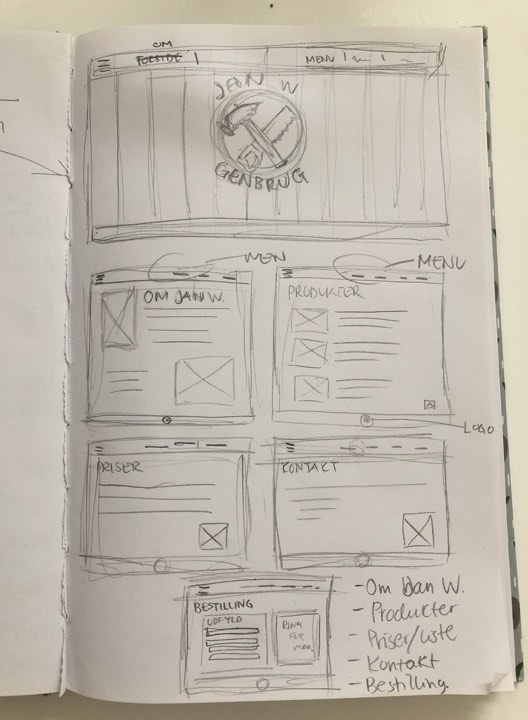 OM
FORSIDE
MENU
JAN W
GENBRUG
MEN
MENU
OM JAN W.
PRODUKTER
LOGO
PRISER
KONTAKT
BESTILLING
UDFYLD
RING
- Om Jan W.
- Produkter
- Priser/Liste
- Kontakt
- Bestilling